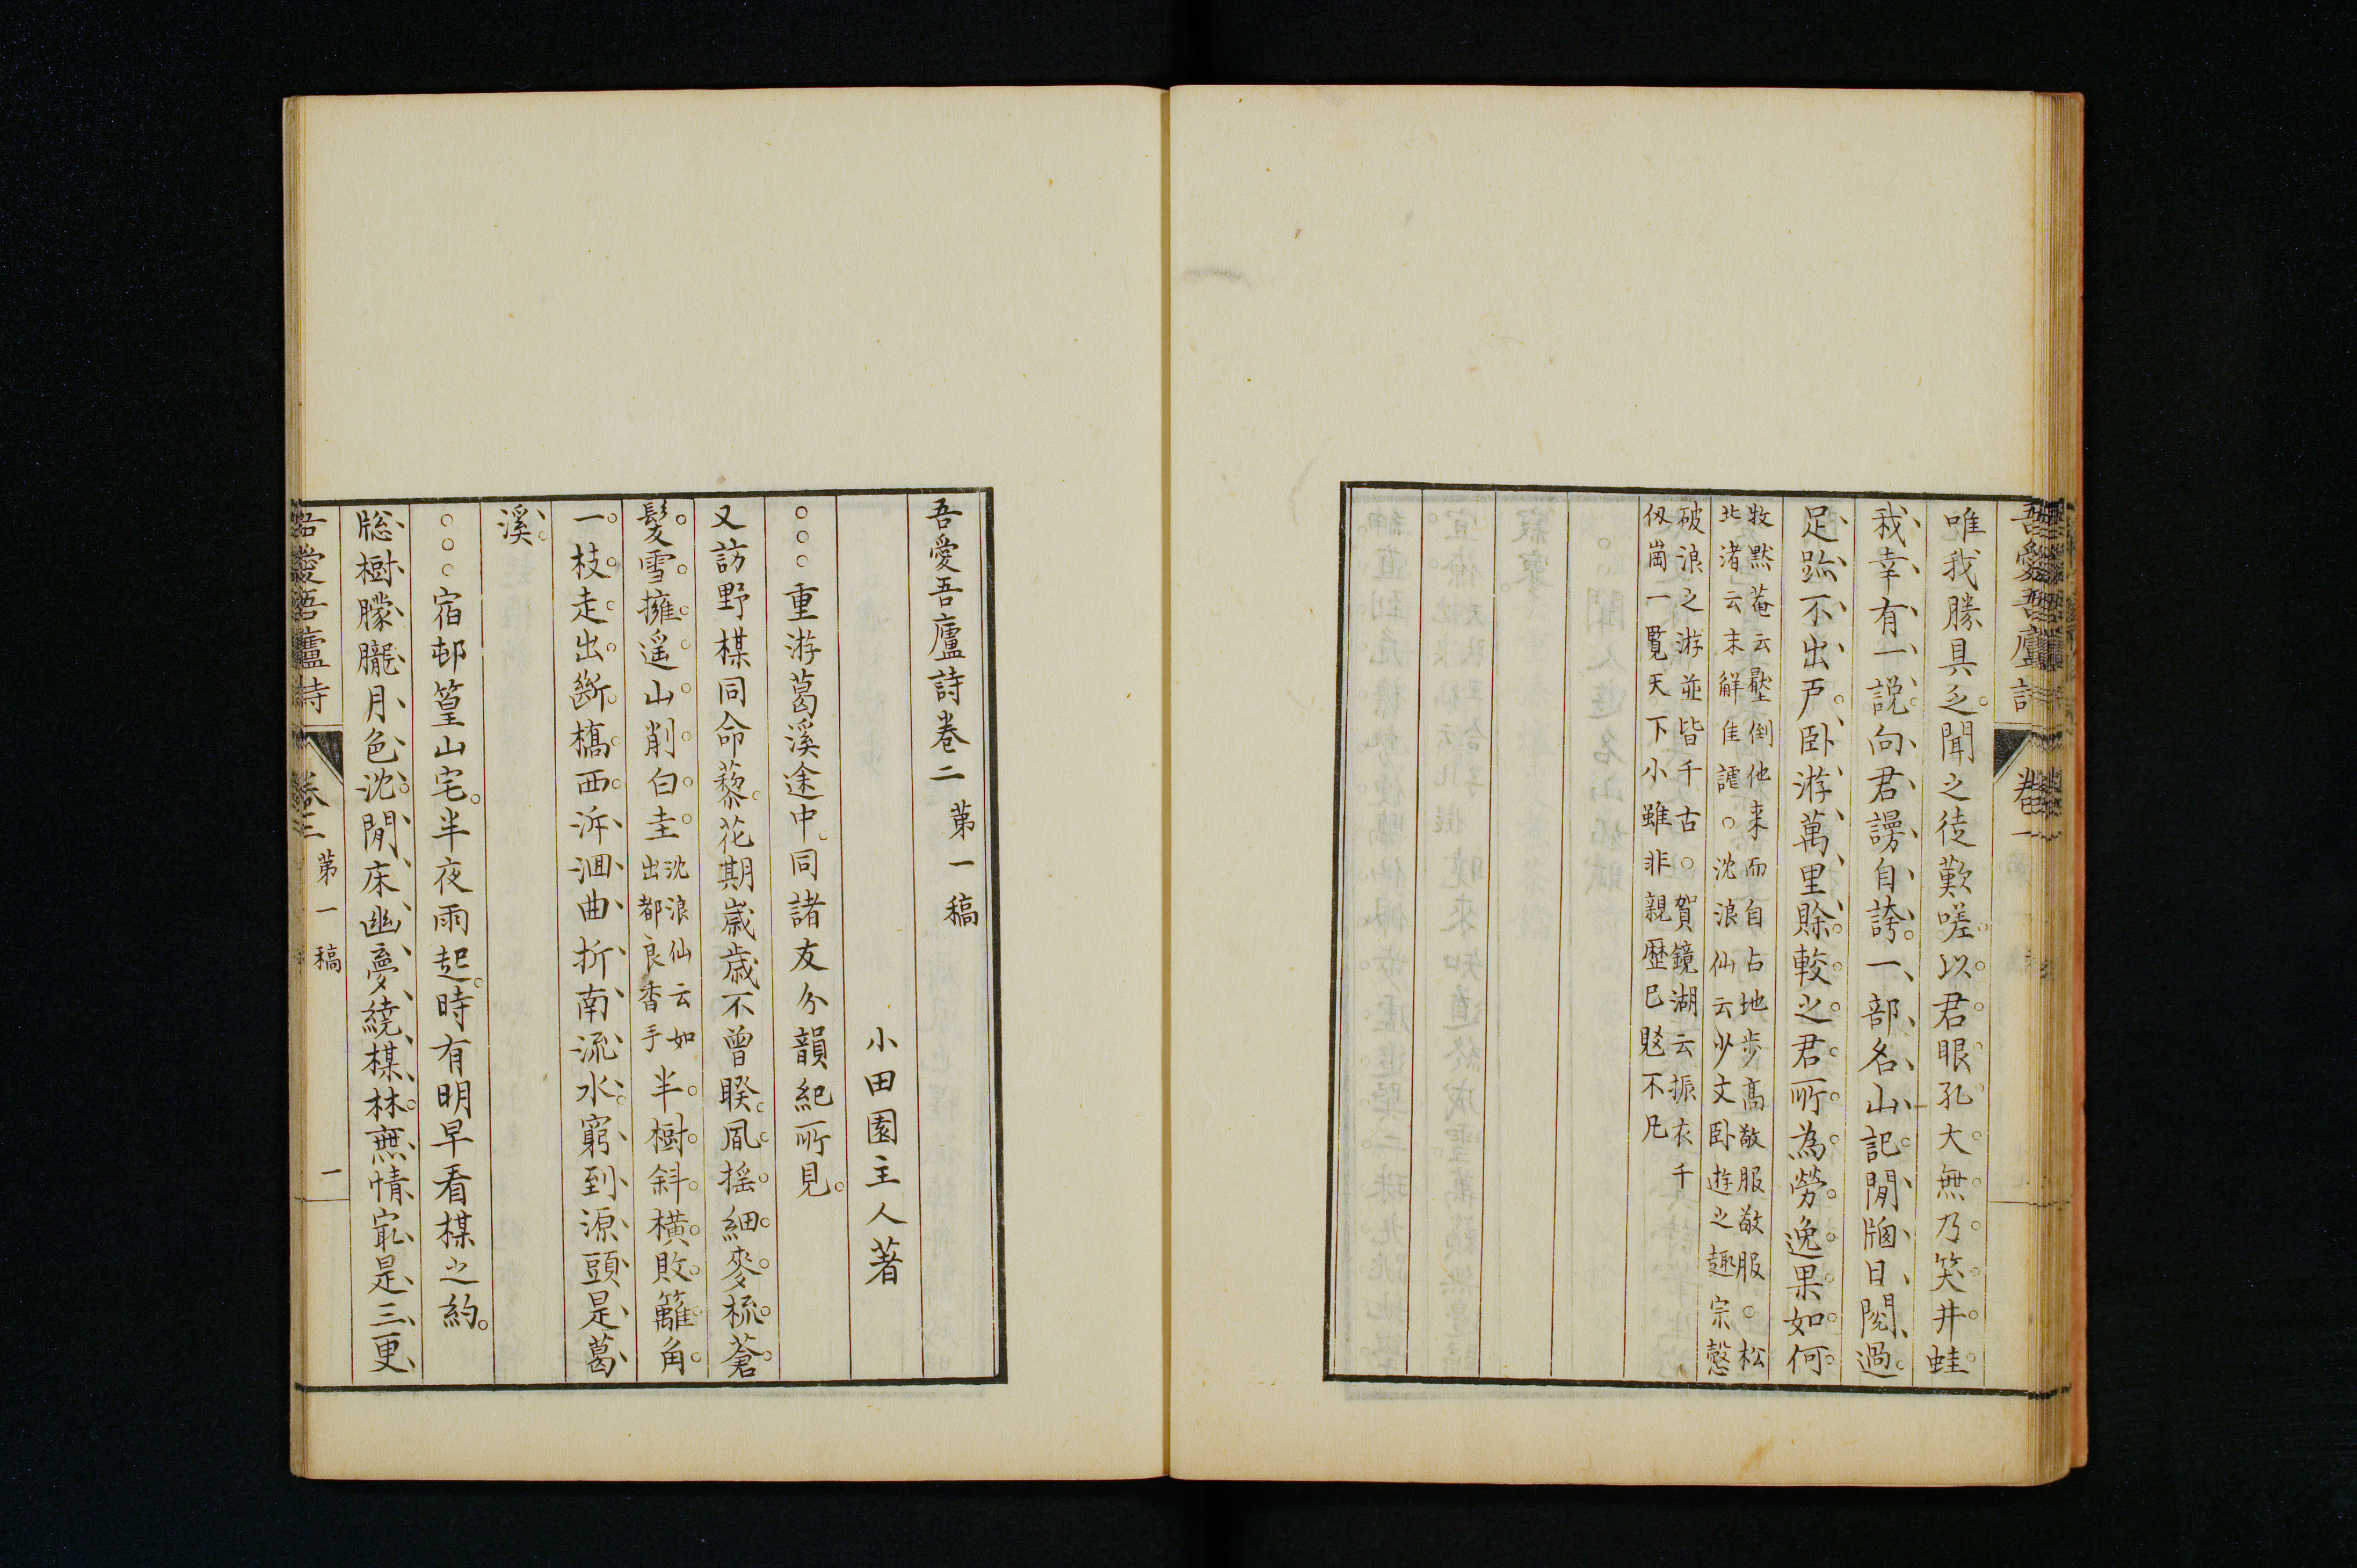 吾愛吾廬詩
卷一
唯我勝具乏。聞之徒歎嗟。以君眼孔大。無乃笑井蛙。
我幸有一説。向君謾自誇。一部名山記。閒牕日閱過。
足跡不出戸。臥游萬里賒。較之君所為。勞逸果如何。
牧默菴云壓倒他來而自占地步高敬服敬服○松
北渚云末解隹謔○沈浪仙云少文臥遊之趣宗慤
破浪之游並皆千古○賀鏡湖云振衣千
仭崗一覽天下小雖非親歷已覺不凡
吾愛吾廬詩卷二 第一稿
小田園主人著
○○○重游葛溪途中。同諸友分韻紀所見。
又訪野楳同命藜。花期歳歳不曾暌。風揺細麥梳蒼
髮。雪擁遥山削白圭
沈浪仙云如
出都良香手
半樹斜橫敗籬角
一枝走出斷橋西。泝洄曲折南流水。窮到源頭是葛
溪。
○○○宿邨篁山宅。半夜雨起。時有明早看楳之約。
牕樹朦朧月色沈。閒床幽夢繞楳林。無情寂是三更
吾愛吾廬詩
卷二
第一稿
一